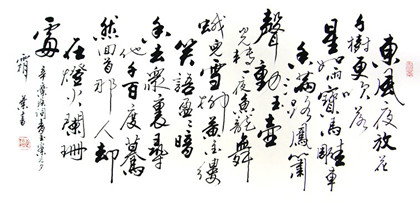 東風夜放花
千樹更吹落
星如雨寶馬雕車
香滿路鳳簫
聲動玉壺
光轉一夜魚龍舞
蛾兒雪柳黃金縷
笑語盈盈暗
香去衆裏尋
他千百度驀
然回首那人卻
在燈火闌珊
處
辛棄疾詞青玉案元夕